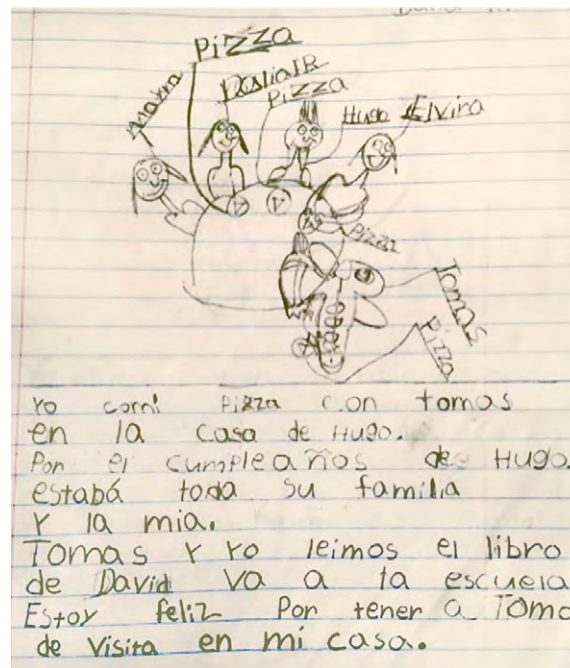 Pizza
Dalia R
Pizza
Hugo Elvira
Pizza
Tomas
Pizza
Yo comi Pizza con tomas
en la casa de Hugo.
Por el cumpleaños de Hugo.
estabá toda su familia
Y la mia.
Tomas Y Yo leimos el libro
de David va a la escuela
Estoy feliz Por tener a Toma
de visita en mi casa.